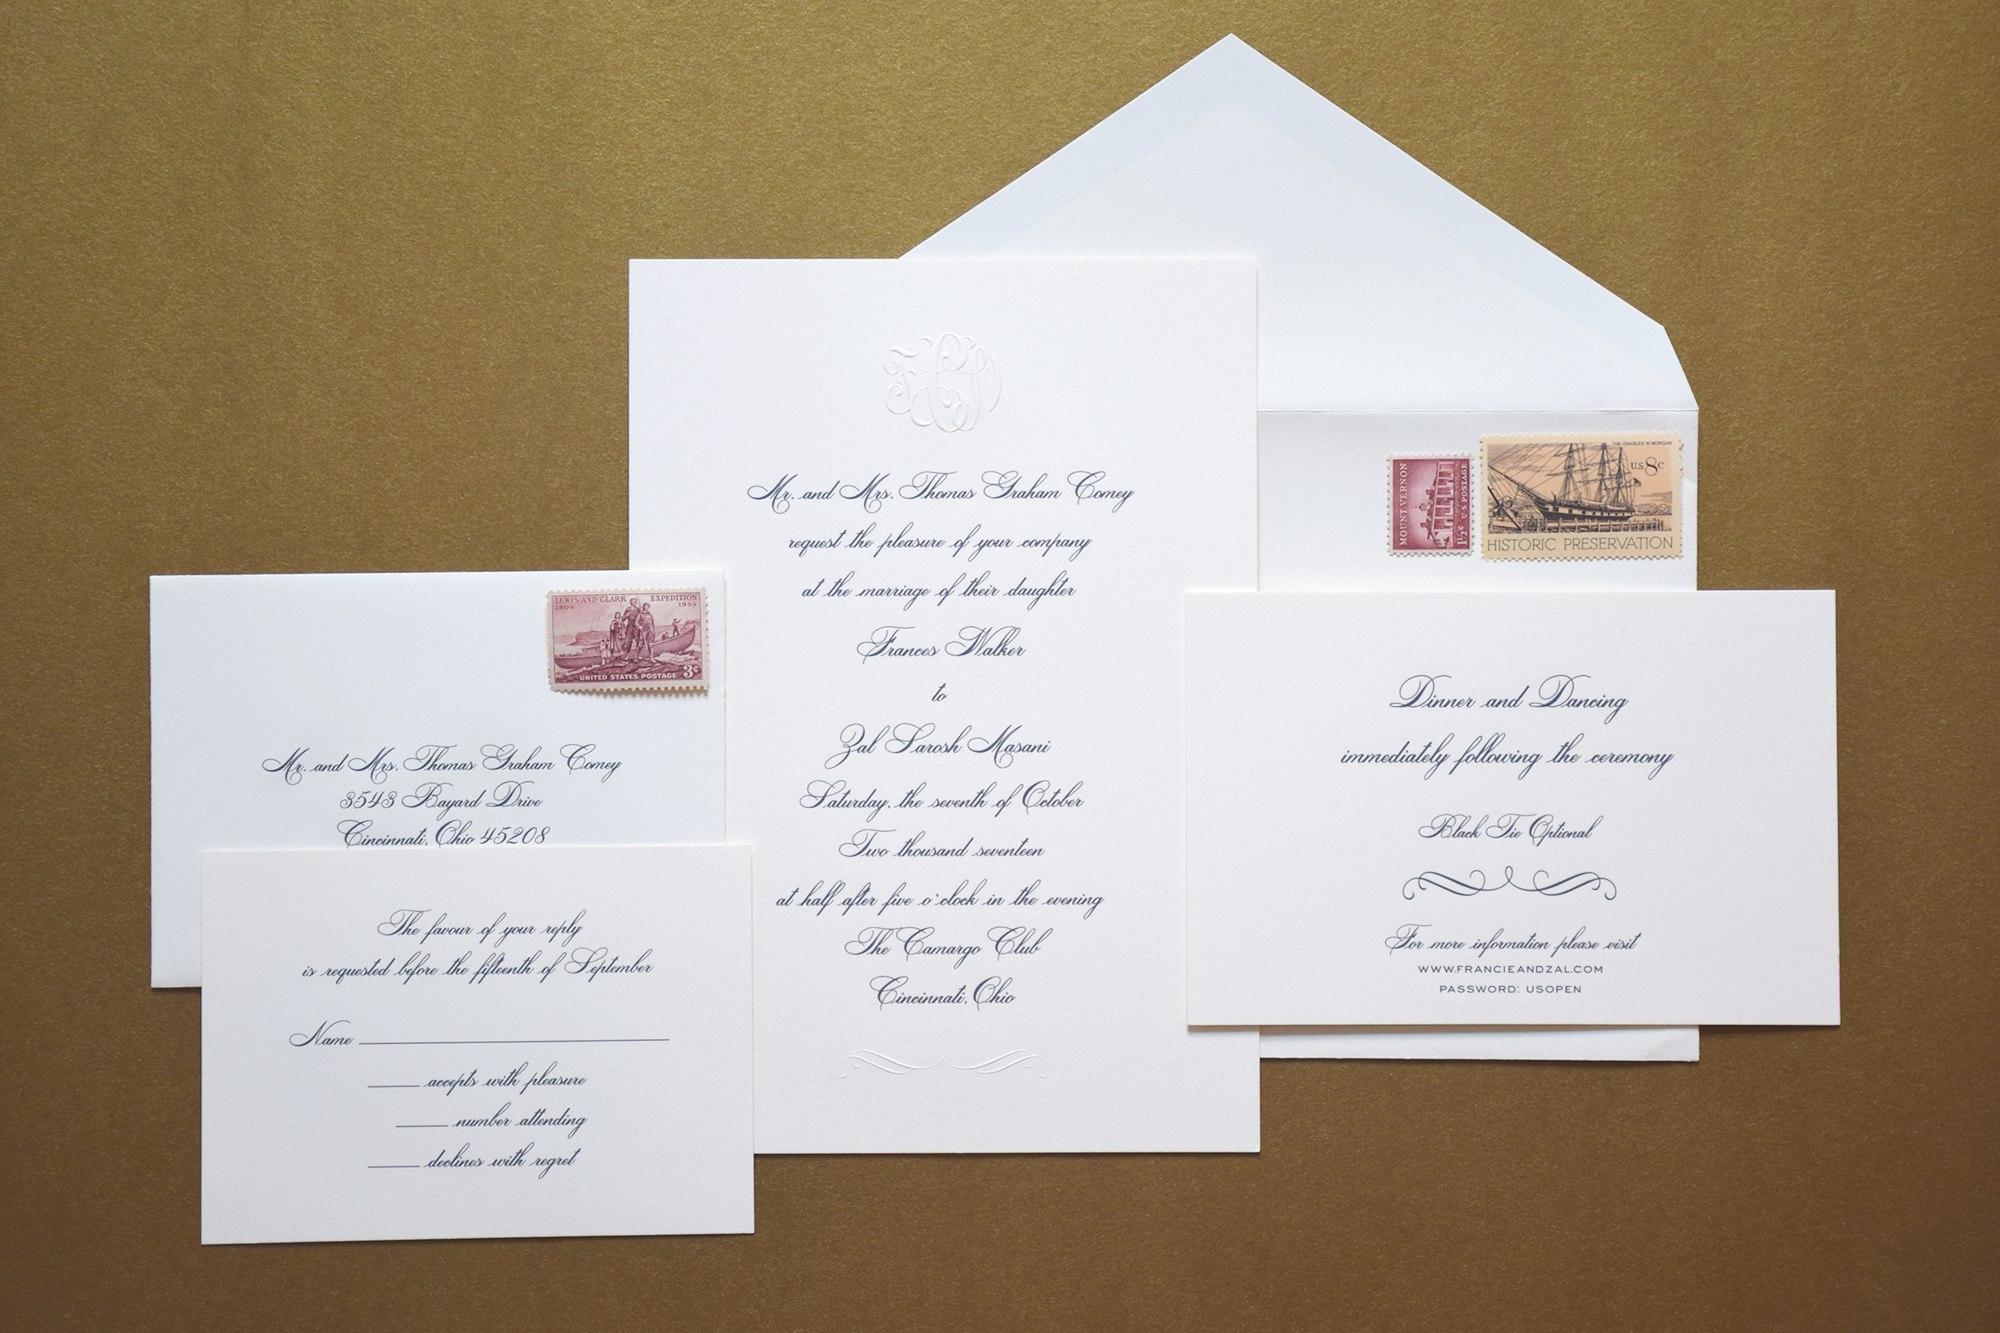 Mr. and Mrs. Thomas Graham Comey
request the pleasure of your company
at the marriage of their daughter
Frances Walker
to
Zal Sarosh Masani
Saturday, the seventh of October
Two thousand seventeen
at half after five o'clock in the evening
The Camargo Club
Cincinnati, Ohio
LEWIS AND CLARK EXPEDITION
1804 1954
UNITED STATES POSTAGE 3¢
Mr. and Mrs. Thomas Graham Comey
3543 Bayard Drive
Cincinnati, Ohio 45208
The favour of your reply
is requested before the fifteenth of September
Name
accepts with pleasure
number attending
declines with regret
MOUNT VERNON
1½¢ U.S. POSTAGE
THE CHARLES W. MORGAN
U.S. 8c
HISTORIC PRESERVATION
Dinner and Dancing
immediately following the ceremony
Black Tie Optional
For more information please visit
WWW.FRANCIEANDZAL.COM
PASSWORD: USOPEN